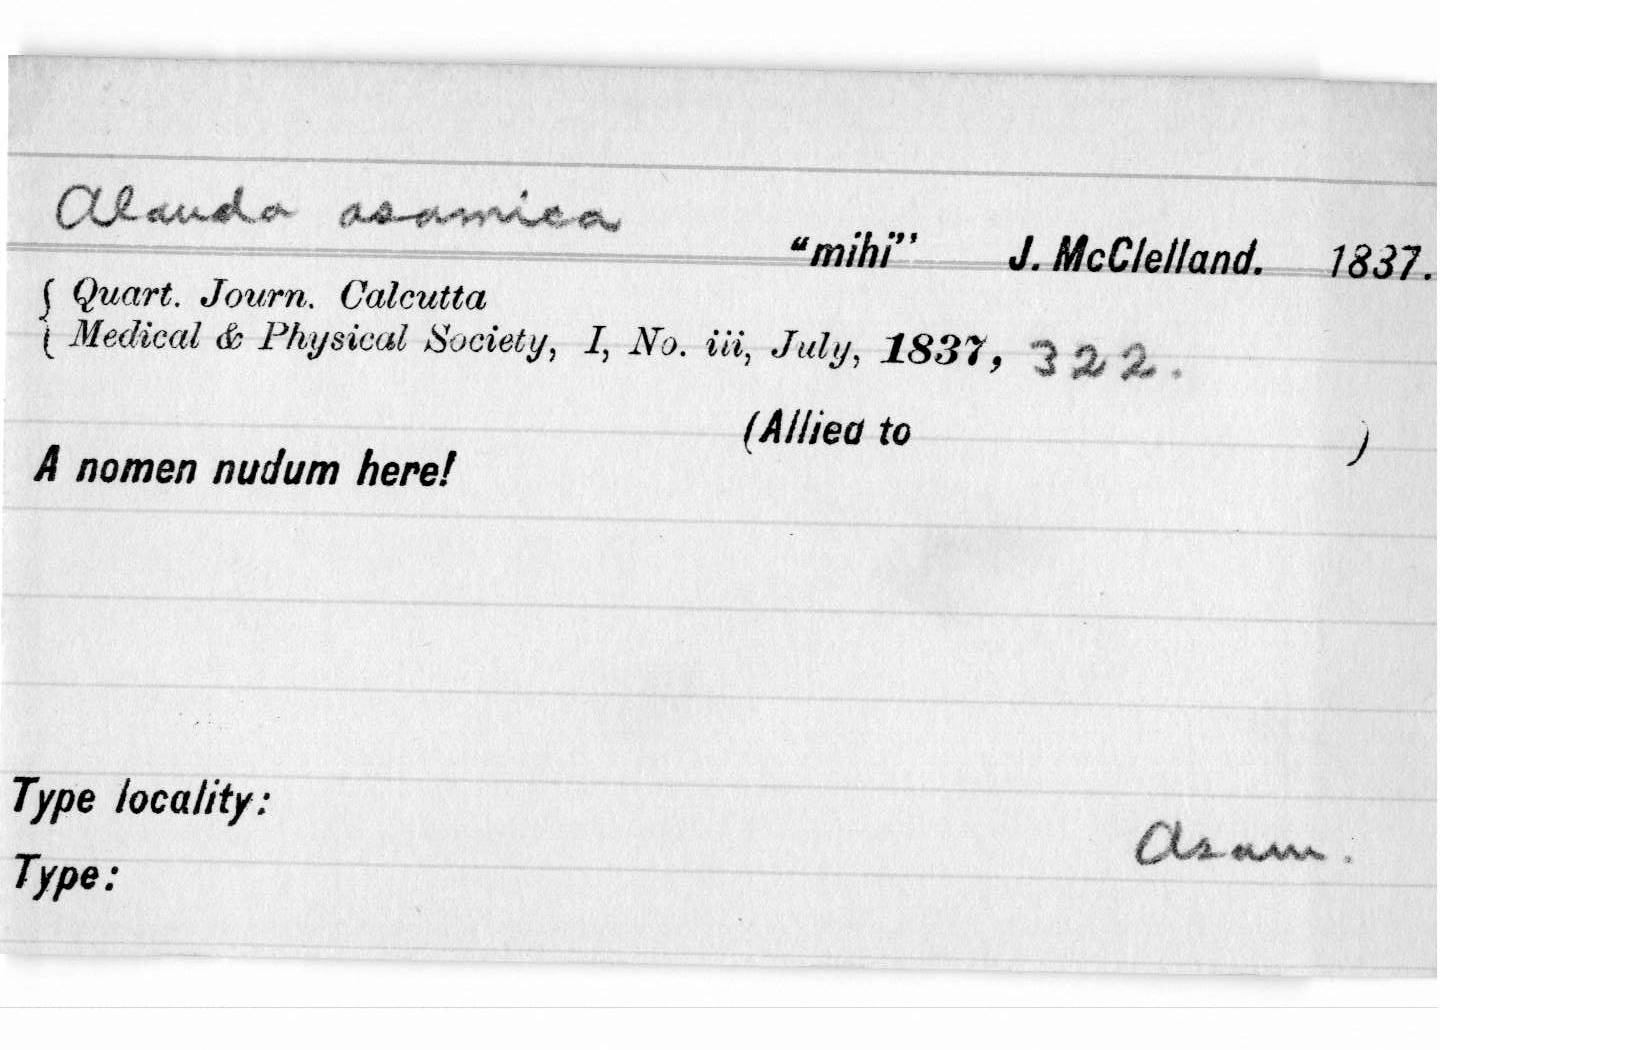 Alauda asamica
"mihi" J. McClelland. 1837.
{ Quart. Journ. Calcutta
Medical & Physical Society, I, No. iii, July, 1837, 322.
(Allied to )
A nomen nudum here!
Type locality:
Asam.
Type: